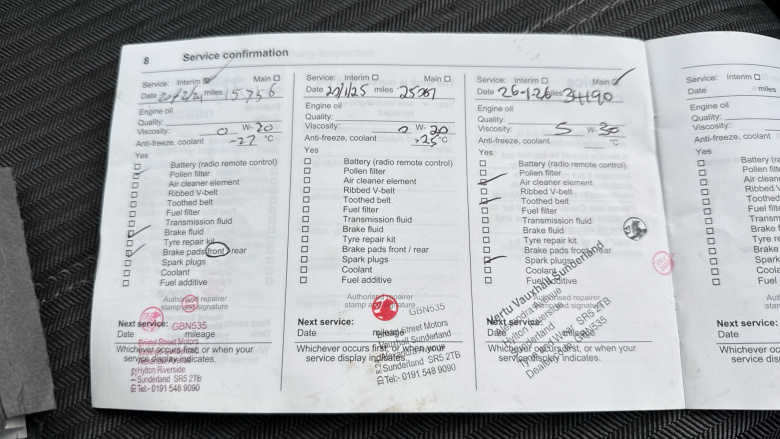 8 Service confirmation
Service: Interim Main
Date miles 15756
Engine oil
Quality:
Viscosity: 0 W-20
Anti-freeze, coolant -22 °C
Yes
Battery (radio remote control)
Pollen filter
Air cleaner element
Ribbed V-belt
Toothed belt
Fuel filter
Transmission fluid
Brake fluid
Tyre repair kit
Brake pads front / rear
Spark plugs
Coolant
Fuel additive
Authorised repairer
stamp and signature
GBN535
Next service:
Date mileage
Whichever occurs first, or when your
service display indicates.
Bristol Street Motors
Hylton Riverside
Sunderland SR5 2TB
Tel:- 0191 548 9090
Service: Interim Main
Date 20/1/25 miles
Engine oil
Quality:
Viscosity: 0 W-20
Anti-freeze, coolant >25 °C
Yes
Battery (radio remote control)
Pollen filter
Air cleaner element
Ribbed V-belt
Toothed belt
Fuel filter
Transmission fluid
Brake fluid
Tyre repair kit
Brake pads front / rear
Spark plugs
Coolant
Fuel additive
Authorised repairer
stamp and signature
GBN535
Next service:
Date mileage
Whichever occurs first, or when your
service display indicates.
Street Motors
Vauxhall Sunderland
Sunderland SR5 2TB
Tel:- 0191 548 9090
Service: Interim Main
Date 26-1-26 miles 34190
Engine oil
Quality:
Viscosity: 5 W-30
Anti-freeze, coolant °C
Yes
Battery (radio remote control)
Pollen filter
Air cleaner element
Ribbed V-belt
Toothed belt
Fuel filter
Transmission fluid
Brake fluid
Tyre repair kit
Brake pads front / rear
Spark plugs
Coolant
Fuel additive
Authorised repairer
stamp and signature
Next service:
Date mileage
Whichever occurs first, or when your
service display indicates.
Vertu Vauxhall Sunderland
Hylton Riverside
Sunderland
Tyne and Wear SR5 2TB
GBN535
Service: Interim
Date miles
Engine oil
Quality:
Viscosity:
Anti-freeze, coolant
Yes
Battery
Pollen
Air clean
Ribbed
Toothed
Fuel filt
Transm
Brake f
Tyre re
Brake
Spark
Coolan
Fuel a
Auth
stamp
Next service:
Date
Whichever oc
service dis